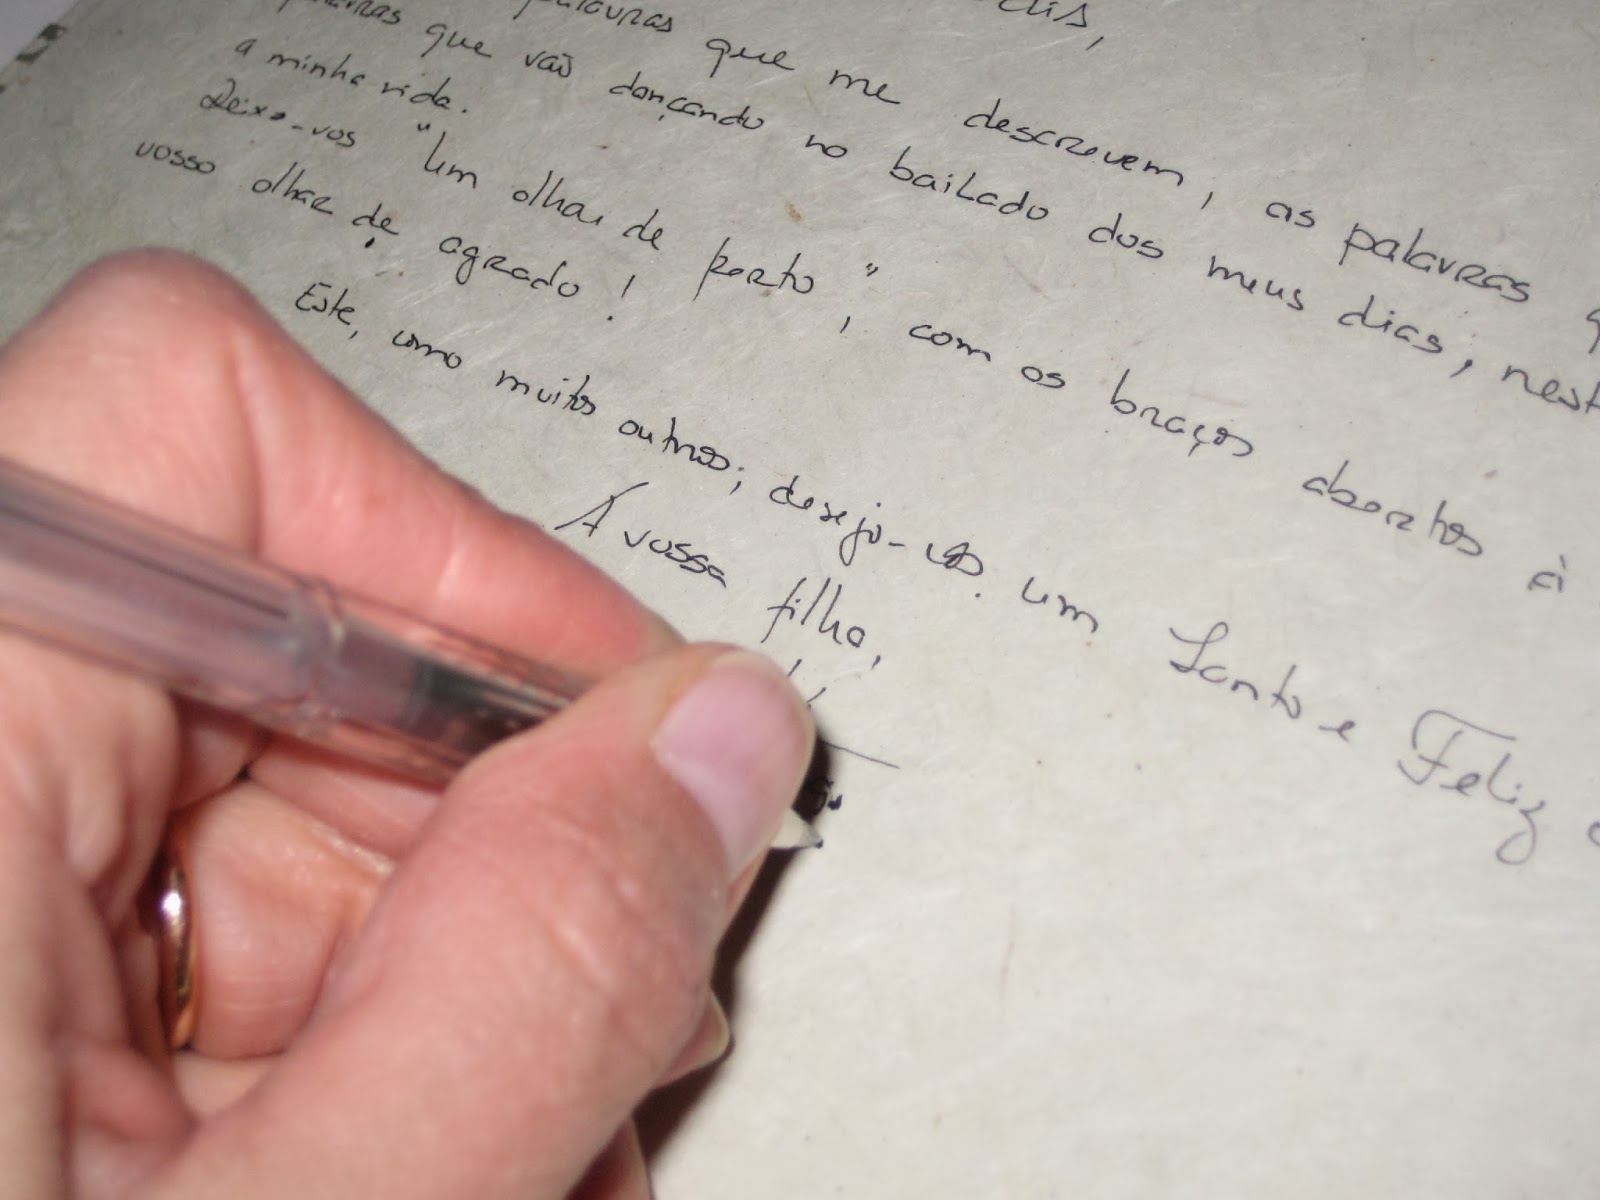 palavras que me descrevem, as palavras
palavras que vão dançando no bailado dos meus dias, nest
a minha vida.
Deixo-vos "Um olhar de perto", com os braços abertos à
vosso olhar de agrado!
Este, como muitos outros; desejo-vos um Santo e Feliz
A vossa filha,